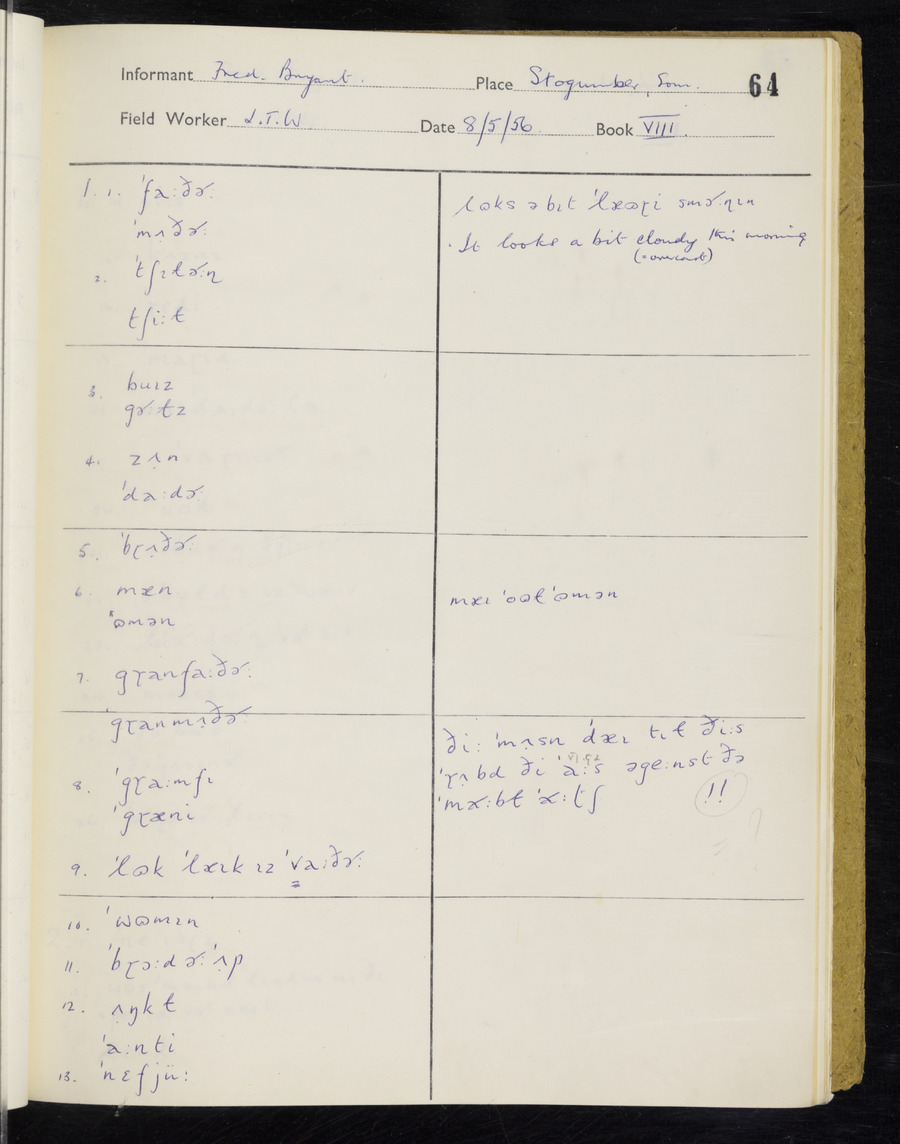 Informant Fred. Bryant. Place Stogumber, Som. 64
Field Worker J.T.W Date 8/5/56 Book VIII
1. 1. ˈfaːðɚː
ˈmʌ̣ðɚː
2. ˈtʃɪɫɚːɳ
tʃiːɫ
3. buɪz
gɚːɫz
4. zʌ̣n
ˈdaːdɚː
5. ˈbɽʌ̣ðɚː
6. mæn
ˈɷmən
7. gɽanfaːðɚː
ˈgɽanmʌ̣ðɚː
8. ˈgɽaːmfɪ
ˈgɽæni
9. ˈlɷk ˈlæɪk ɪz ˈvaːðɚː
10. ˈwɷmɪn
11. ˈbɽɔːdɚːˈʌ̣p
12. ʌ̣ŋkɫ
ˈaːnti
13. ˈnɛfjüː
lɷks ə bɪt ˈlæɷɽi smɚːɳɪn
It looks a bit cloudy this morning
(=overcast)
mæɪ ˈoɷɫ ˈɷmən
ðiː ˈmʌ̣sn dæɪ
ðiːs
əgeːnst ðə
!!
?